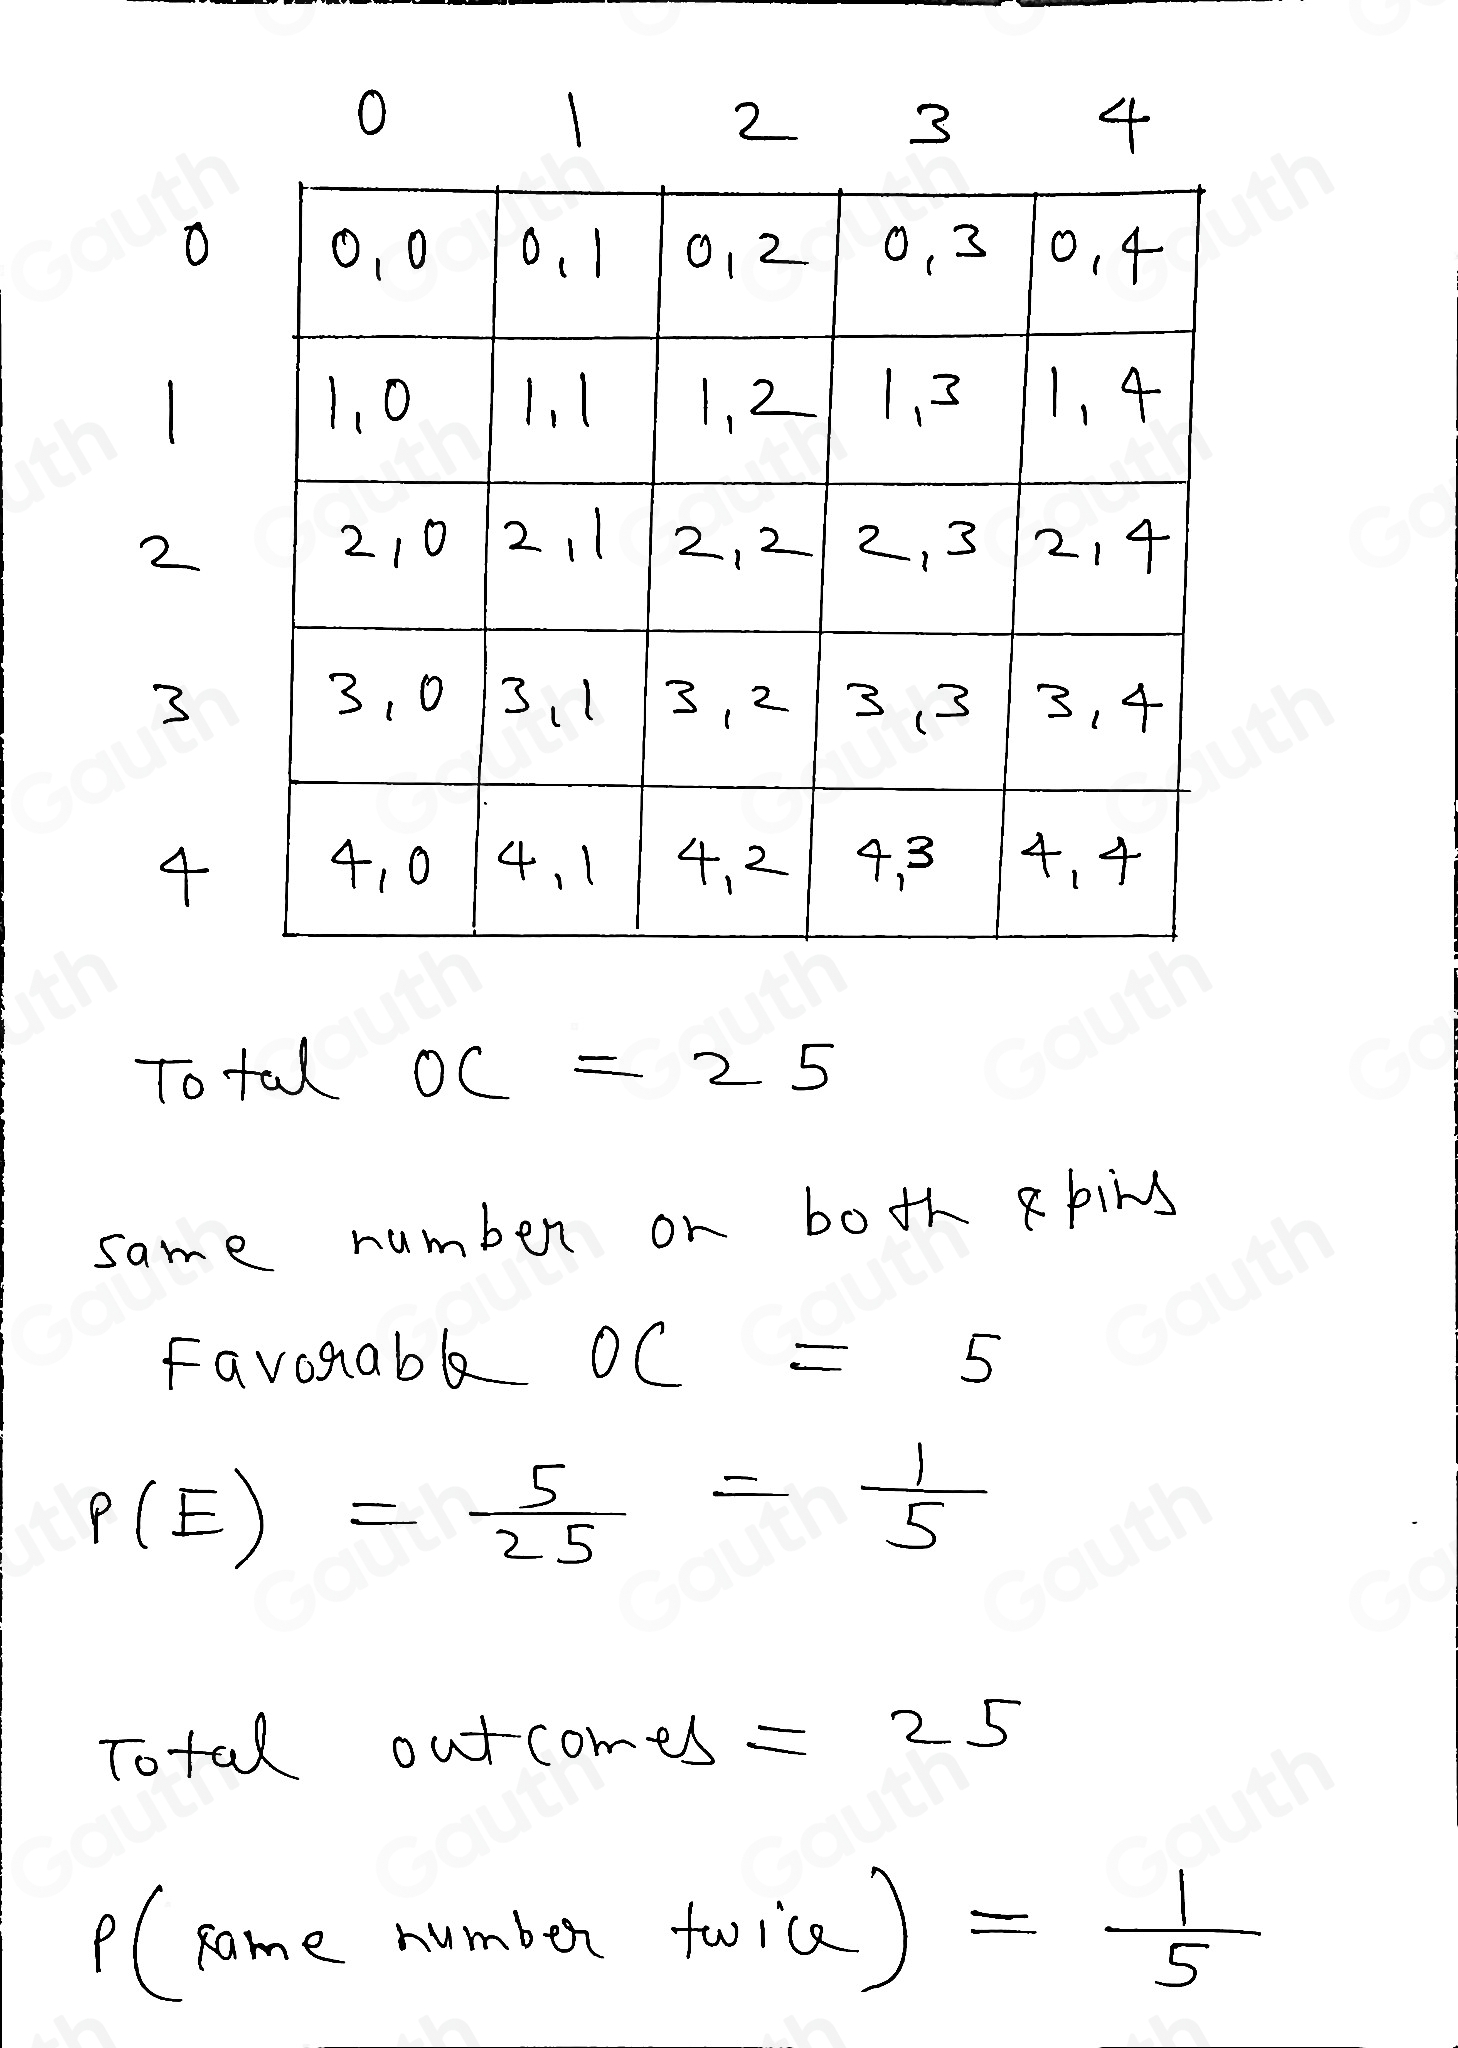 0 1 2 3 4
0 0,0 0,1 0,2 0,3 0,4
1 1,0 1,1 1,2 1,3 1,4
2 2,0 2,1 2,2 2,3 2,4
3 3,0 3,1 3,2 3,3 3,4
4 4,0 4,1 4,2 4,3 4,4
Total OC = 25
same number on both spins
Favorable OC = 5
P(E) = 5/25 = 1/5
Total outcomes = 25
P(same number twice) = 1/5
Gauth